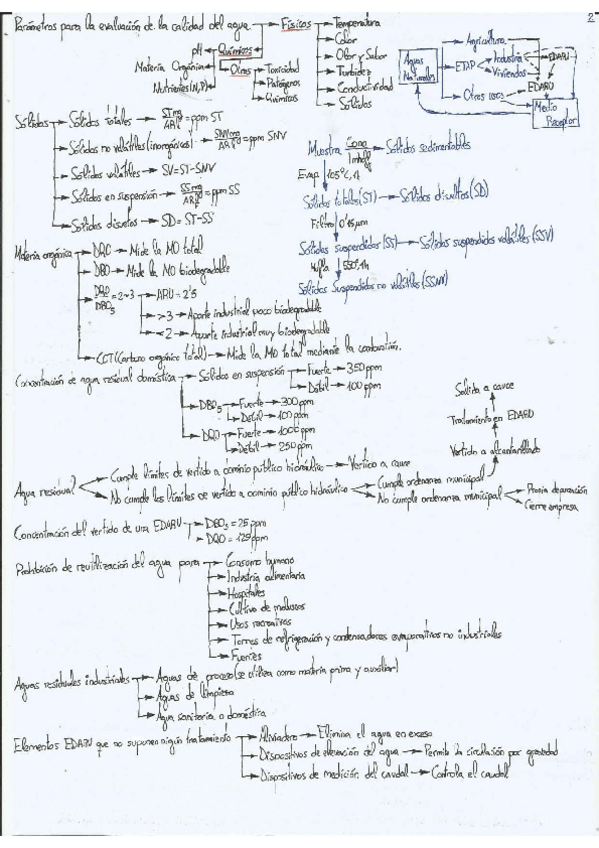 Parámetros para la evaluación de la calidad del agua → Físicos → Temperatura 2
→ Color
→ Olor y Sabor
→ Turbidez
→ Conductividad
→ Sólidos
pH ← Químicos
Materia Orgánica ←
Nutrientes (N,P) ←
Otros → Toxicidad
→ Patógenos
→ Químicos
Aguas Naturales → ETAP → Industria → EDARI
→ Viviendas → EDARU
→ Agricultura
→ Otros usos
Medio Receptor
Sólidos → Sólidos totales → STmg/ARl = ppm ST
→ Sólidos no volátiles (inorgánicos) → SNVmg/ARl = ppm SNV
→ Sólidos volátiles → SV = ST-SNV
→ Sólidos en suspensión → SSmg/ARl = ppm SS
→ Sólidos disueltos → SD = ST-SS
Muestra → Sólidos sedimentables
Evap. 105ºC, 1h
Sólidos totales (ST) → Sólidos disueltos (SD)
Filtro 0'45µm
Sólidos suspendidos (SS) → Sólidos suspendidos volátiles (SSV)
Mufla 550º, 1h
Sólidos Suspendidos no volátiles (SSNV)
Materia orgánica → DQO → Mide la MO total
→ DBO → Mide la MO biodegradable
→ DQO/DBO5 = 2-3 → ARU = 2'5
→ >3 → Aporte industrial poco biodegradable
→ <2 → Aporte industrial muy biodegradable
→ COT (carbono orgánico total) → Mide la MO Total mediante la combustión.
Concentración de agua residual doméstica → Sólidos en suspensión → Fuerte → 350 ppm
→ Débil → 100 ppm
→ DBO5 → Fuerte → 300 ppm
→ Débil → 100 ppm
→ DQO → Fuerte → 1000 ppm
→ Débil → 250 ppm
Salida a cauce
Tratamiento en EDARU
Vertido a alcantarillado
Agua residual → Cumple límites de vertido a dominio público hidráulico → Vertido a cauce
→ No cumple los límites de vertido a dominio público hidráulico → Cumple ordenanza municipal
→ No cumple ordenanza municipal → Propia depuración
→ Cierre empresa
Concentración del vertido de una EDARU → DBO5 = 25 ppm
→ DQO = 125 ppm
Prohibición de reutilización del agua para → Consumo humano
→ Industria alimentaria
→ Hospitales
→ Cultivo de moluscos
→ Usos recreativos
→ Torres de refrigeración y condensadores evaporativos no industriales
→ Fuentes
Aguas residuales industriales → Aguas de proceso (se utiliza como materia prima y auxiliar)
→ Aguas de limpieza
→ Agua sanitaria o doméstica
Elementos EDARU que no suponen ningún tratamiento → Aliviadero → Elimina el agua en exceso
→ Dispositivos de elevación del agua → Permite la circulación por gravedad
→ Dispositivos de medición del caudal → Controla el caudal